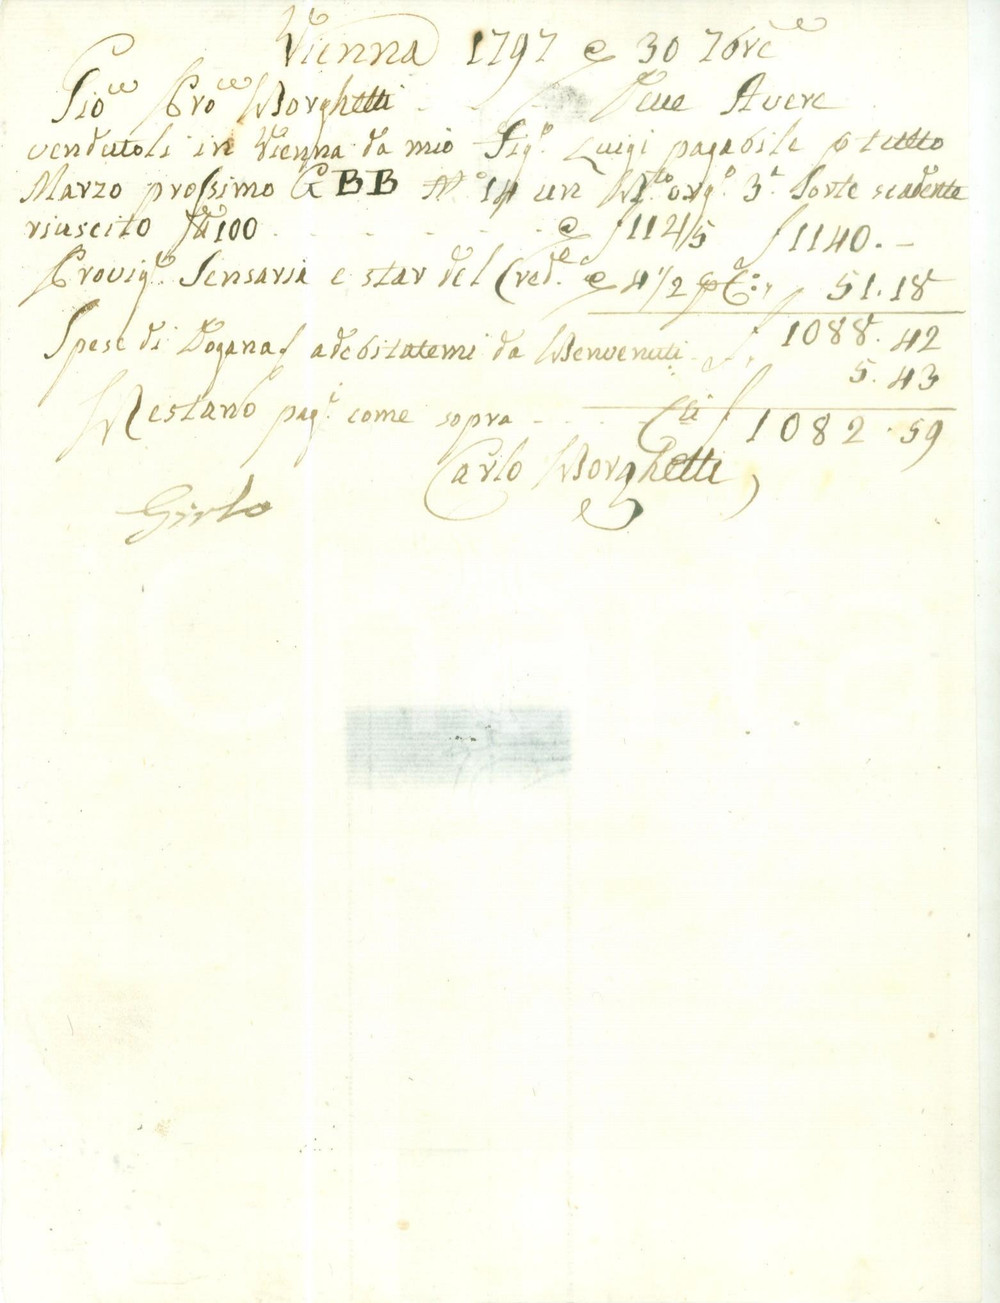 Vienna 1797 e 30 7bre
Gio Borghetti Deve Avere
vendutoli in Vienna da mio Sigr Luigi pagabile tutto
Marzo prossimo G BB No 14 un 3a Sorte scadente
riuscito 100 - - - - - - e f 114/5 f 1140. -
Provige Sensaria e star del Crede e 4 1/2 pC: 51.18
1088. 42
Spese di Dogana adebitatemi da Benvenuti
5. 43
Restano page come sopra - - - f 1082. 59
Carlo Borghetti
Girlo